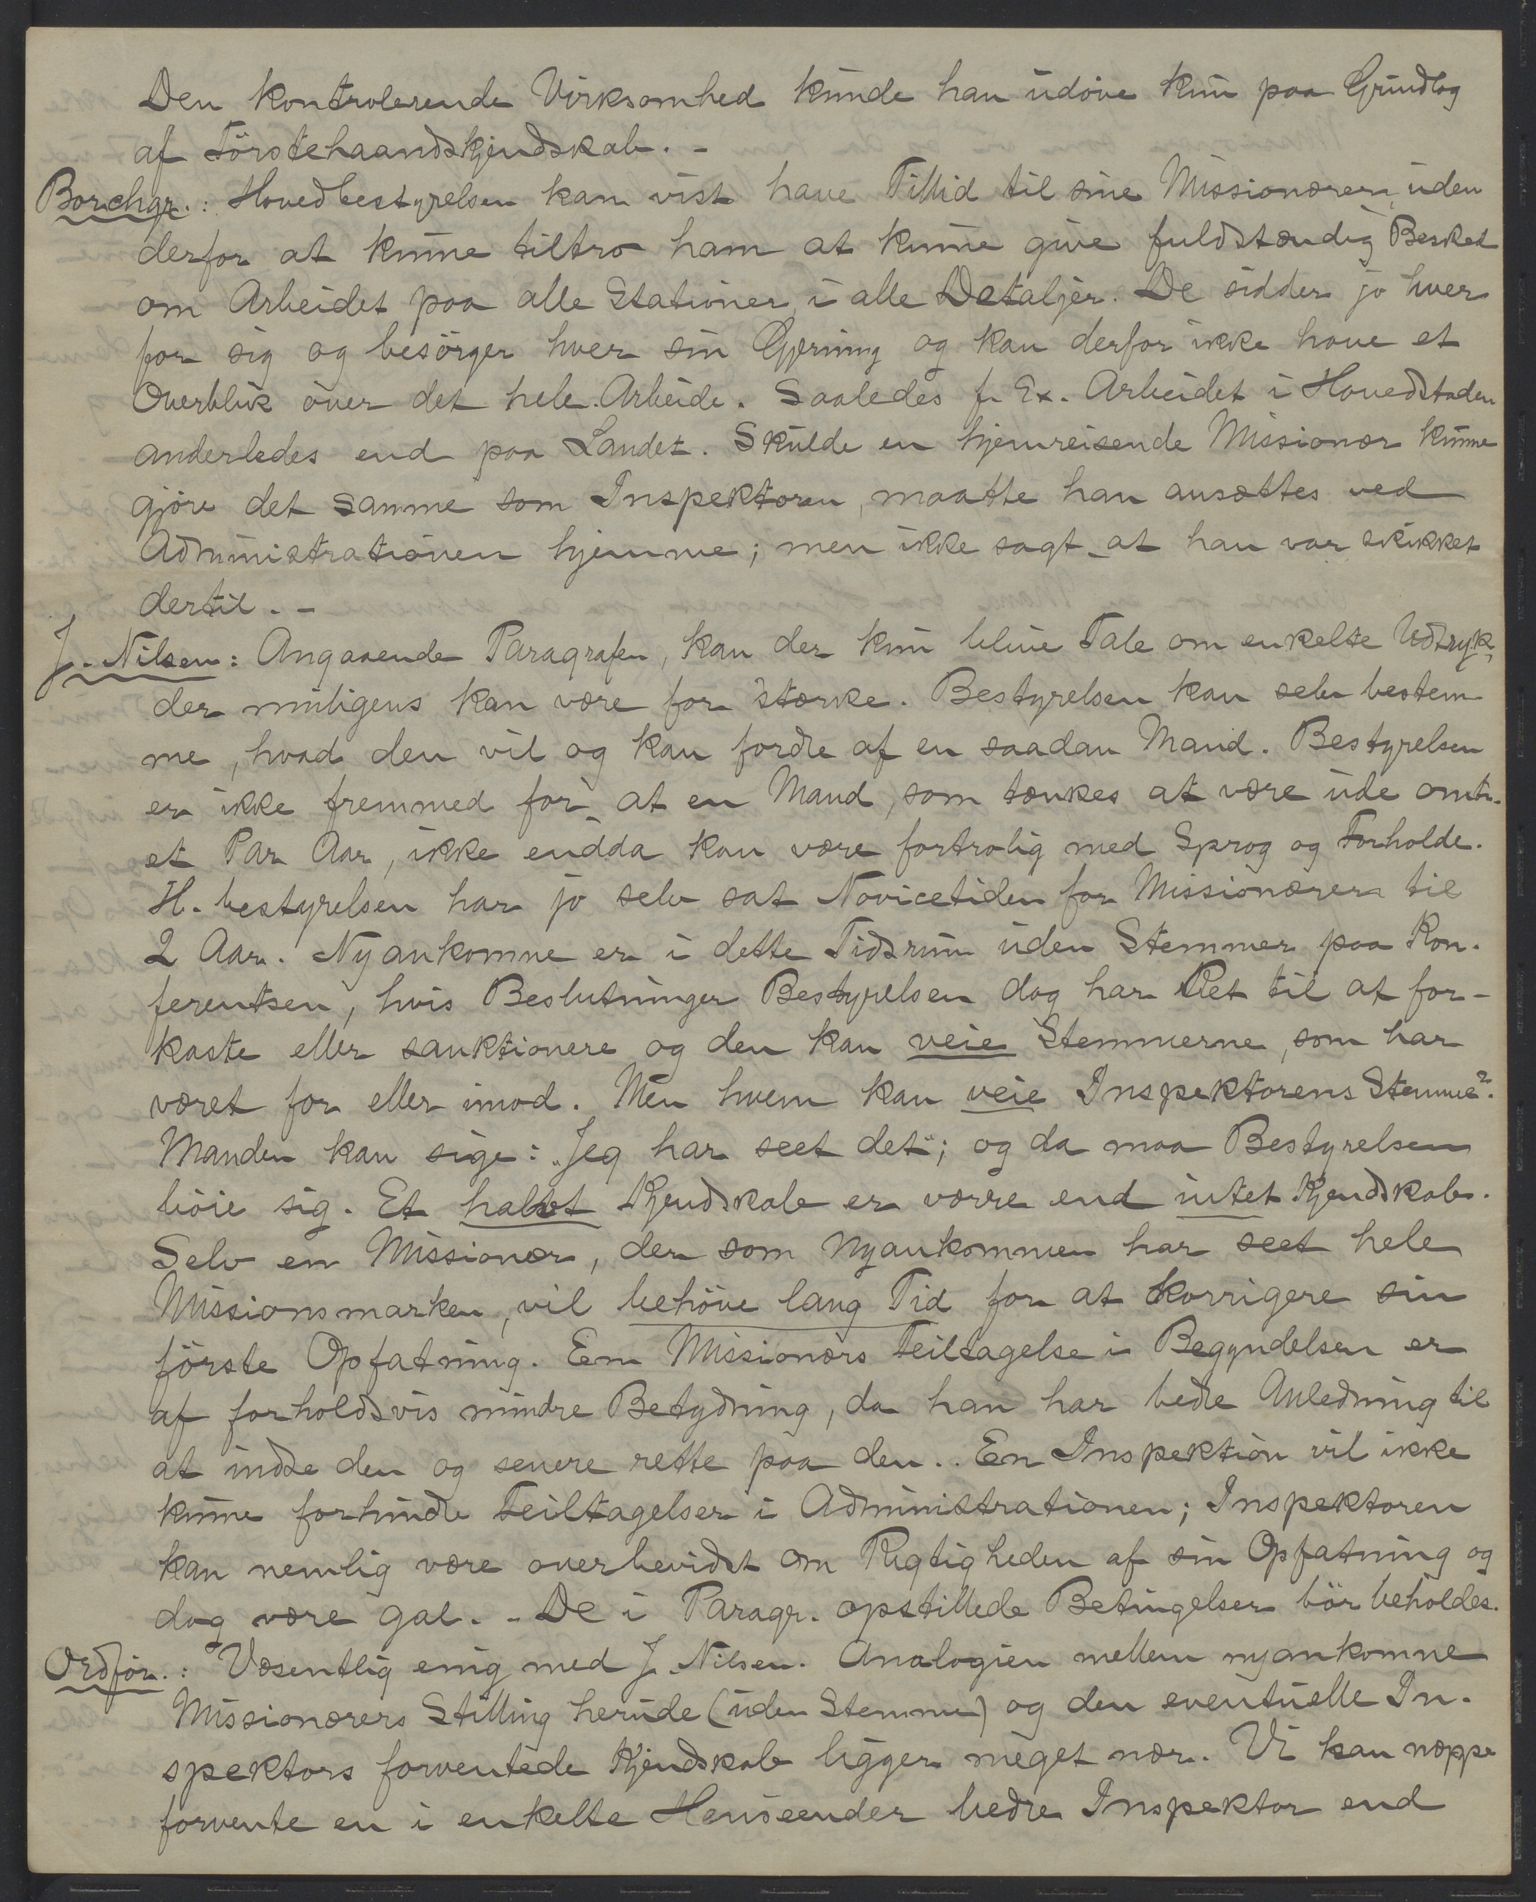 Den kontrolerende Virksomhed kunde han udöve kun paa Grundlag
af Förstehaandskjendskab. -
Borchgr.: Hovedbestyrelsen kan vist have Tillid til sine Missionærer, uden
derfor at kunne tiltro ham at kunne give fuldstændig Besked
om Arbeidet paa alle Stationer, i alle Detaljer. De sidder jo hver
for sig og besörger hver sin Gjerning og kan derfor ikke have et
Overblik over det hele Arbeide. Saaledes f. Ex. Arbeidet i Hovedstaden
anderledes end paa Landet. Skulde en hjemreisende Missionær kunne
gjöre det samme som Inspektoren, maatte han ansættes ved
Administrationen hjemme; men ikke sagt, at han var skikket
dertil. -
J. Nilsen: Angaaende Paragrafen, kan der kun blive Tale om enkelte Udtryk,
der muligens kan være for stærke. Bestyrelsen kan selv bestem
me, hvad den vil og kan fordre af en saadan Mand. Bestyrelsen
er ikke fremmed for, at en Mand, som tænkes at være ude omtr.
et Par Aar, ikke endda kan være fortrolig med Sprog og Forholde.
H. bestyrelsen har jo selv sat Novicetiden for Missionærer til
2 Aar. Nyankomne er i dette Tidsrum uden Stemmer paa Kon-
ferentsen, hvis Beslutninger Bestyrelsen dog har Ret til at for-
kaste eller sanktionere og den kan veie Stemmerne, som har
været for eller imod. Men hvem kan veie Inspektorens Stemme?
Manden kan sige: "Jeg har seet det"; og da maa Bestyrelsen
böie sig. Et halvt Kjendskab er værre end intet Kjendskab.
Selv en Missionær, der som Nyankommen har seet hele
Missionsmarken, vil behöve lang Tid for at korrigere sin
förste Opfatning. En Missionærs Feiltagelse i Begyndelsen er
af forholdsvis mindre Betydning, da han har bedre Anledning til
at indse den og senere rette paa den. En Inspektion vil ikke
kunne forhindre Feiltagelser i Administrationen; Inspektoren
kan nemlig være overbevidst om Rigtigheden af sin Opfatning og
dog være gal. - De i Paragr. opstillede Betingelser bör beholdes.
Ordför.: Væsentlig enig med J. Nilsen. Analogien mellem nyankomne
Missionærers Stilling herude (uden Stemme) og den eventuelle In-
spektors forventede Kjendskab ligger meget nær. Vi kan næppe
forvente en i enkelte Henseender bedre Inspektor end